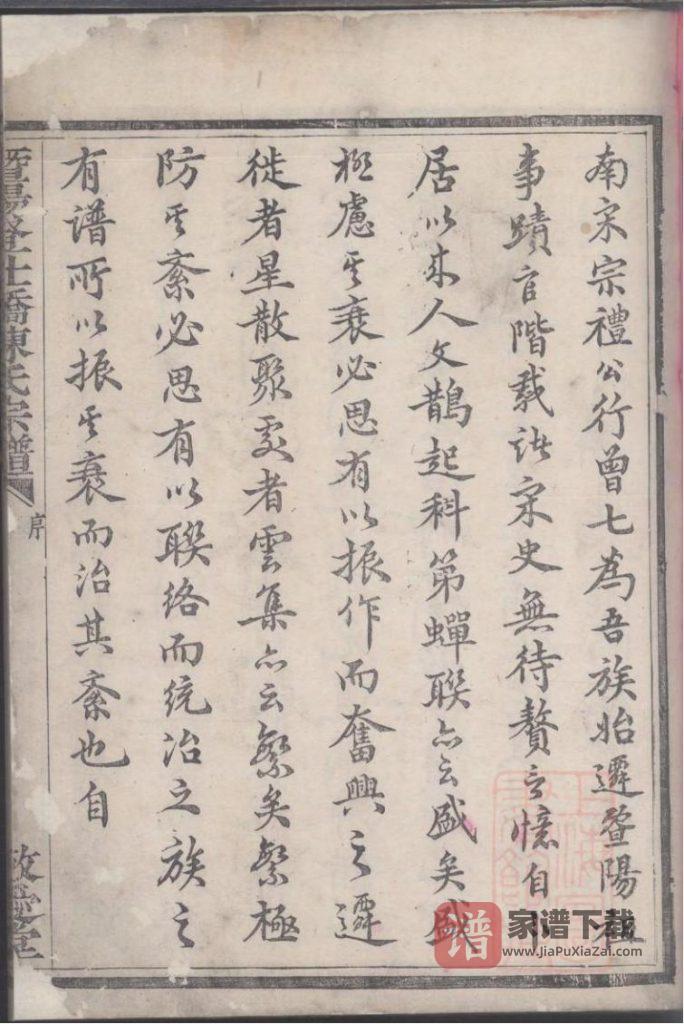 南宋宗禮公行曾七為吾族始遷暨陽祖
事蹟官階載諸宋史無待贅言憶自卜
居以來人文鵲起科第蟬聯亦云盛矣盛
極慮其衰必思有以振作而奮興之遷
徙者星散聚處者雲集亦云繁矣繁極
防其紊必思有以聯絡而統治之族之
有譜所以振其衰而治其紊也自
暨陽 仕橋陳氏宗譜
序
堂
谱
家谱下载
www.JiaPuXiaZai.com